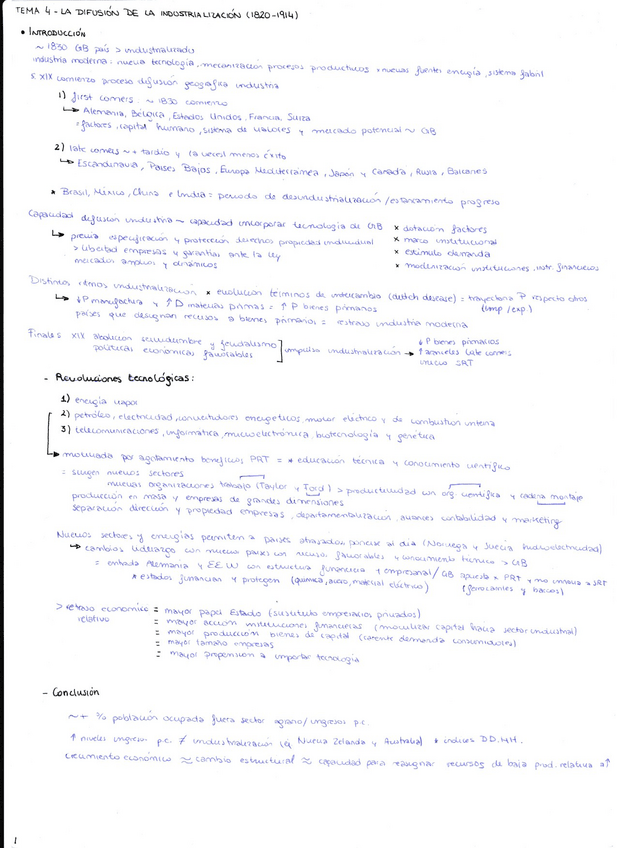 TEMA 4 - LA DIFUSIÓN DE LA INDUSTRIALIZACIÓN (1820-1914)
• INTRODUCCIÓN
~ 1830 GB país > industrializado
industria moderna: nueva tecnología, mecanización procesos productivos + nuevas fuentes energía, sistema fabril
S. XIX comienzo proceso difusión geográfica industria
1) first comers ~ 1830 comienzo
↳ Alemania, Bélgica, Estados Unidos, Francia, Suiza
= factores, capital humano, sistema de valores y mercado potencial ~ GB
2) late comers ~ + tardío y (a veces) menos éxito
↳ Escandinavia, Países Bajos, Europa Mediterránea, Japón y Canadá, Rusia, Balcanes
* Brasil, México, China e India = periodo de desindustrialización / estancamiento progreso
Capacidad difusión industria ~ capacidad incorporar tecnología de GB × dotación factores
↳ previa especificación y protección derechos propiedad individual × marco institucional
> libertad empresas y garantías ante la ley × estímulo demanda
mercados amplios y dinámicos × modernización instituciones, intr. financieros
Distintos ritmos industrialización × evolución términos de intercambio (dutch disease) = trayectoria P respecto otros
↳ ↓P manufactura y ↑D materias primas = ↑P bienes primarios (imp/exp.)
países que designan recursos a bienes primarios = retraso industria moderna
Finales XIX abolición servidumbre y feudalismo ↓P bienes primarios
políticas económicas favorables ] impulso industrialización → ↑aranceles late comers
inicio SRT
- Revoluciones tecnológicas:
1) energía vapor
2) petróleo, electricidad, convertidores energéticos, motor eléctrico y de combustión interna
3) telecomunicaciones, informática, microelectrónica, biotecnología y genética
↳ motivada por agotamiento beneficios PRT = + educación técnica y conocimiento científico
= surgen nuevos sectores
nuevas organizaciones trabajo (Taylor y Ford) > productividad con org. científica y cadena montaje
producción en masa y empresas de grandes dimensiones
separación dirección y propiedad empresas, departamentalización, avances contabilidad y marketing
Nuevos sectores y energías permiten a países atrasados ponerse al día (Noruega y Suecia hidroelectricidad)
↳ cambios liderazgo con nuevos países con recursos favorables y conocimiento técnico > GB
= entrada Alemania y EEUU con estructura financiera y empresarial / GB apuesta × PRT y no innova → SRT
* estados financian y protegen (química, acero, material eléctrico) (ferrocarriles y barcos)
> retraso económico = mayor papel Estado (sustituto empresarios privados)
relativo = mayor acción instituciones financieras (movilizar capital hacia sector industrial)
= mayor producción bienes de capital (carente demanda consumidores)
= mayor tamaño empresas
= mayor propensión a importar tecnología
- Conclusión
~ + % población ocupada fuera sector agrario / ingresos p.c.
↑ niveles ingreso p.c. ≠ industrialización (Nueva Zelanda y Australia) * índices DD.HH.
crecimiento económico ≈ cambio estructural ≈ capacidad para reasignar recursos de baja prod. relativa a ↑
1